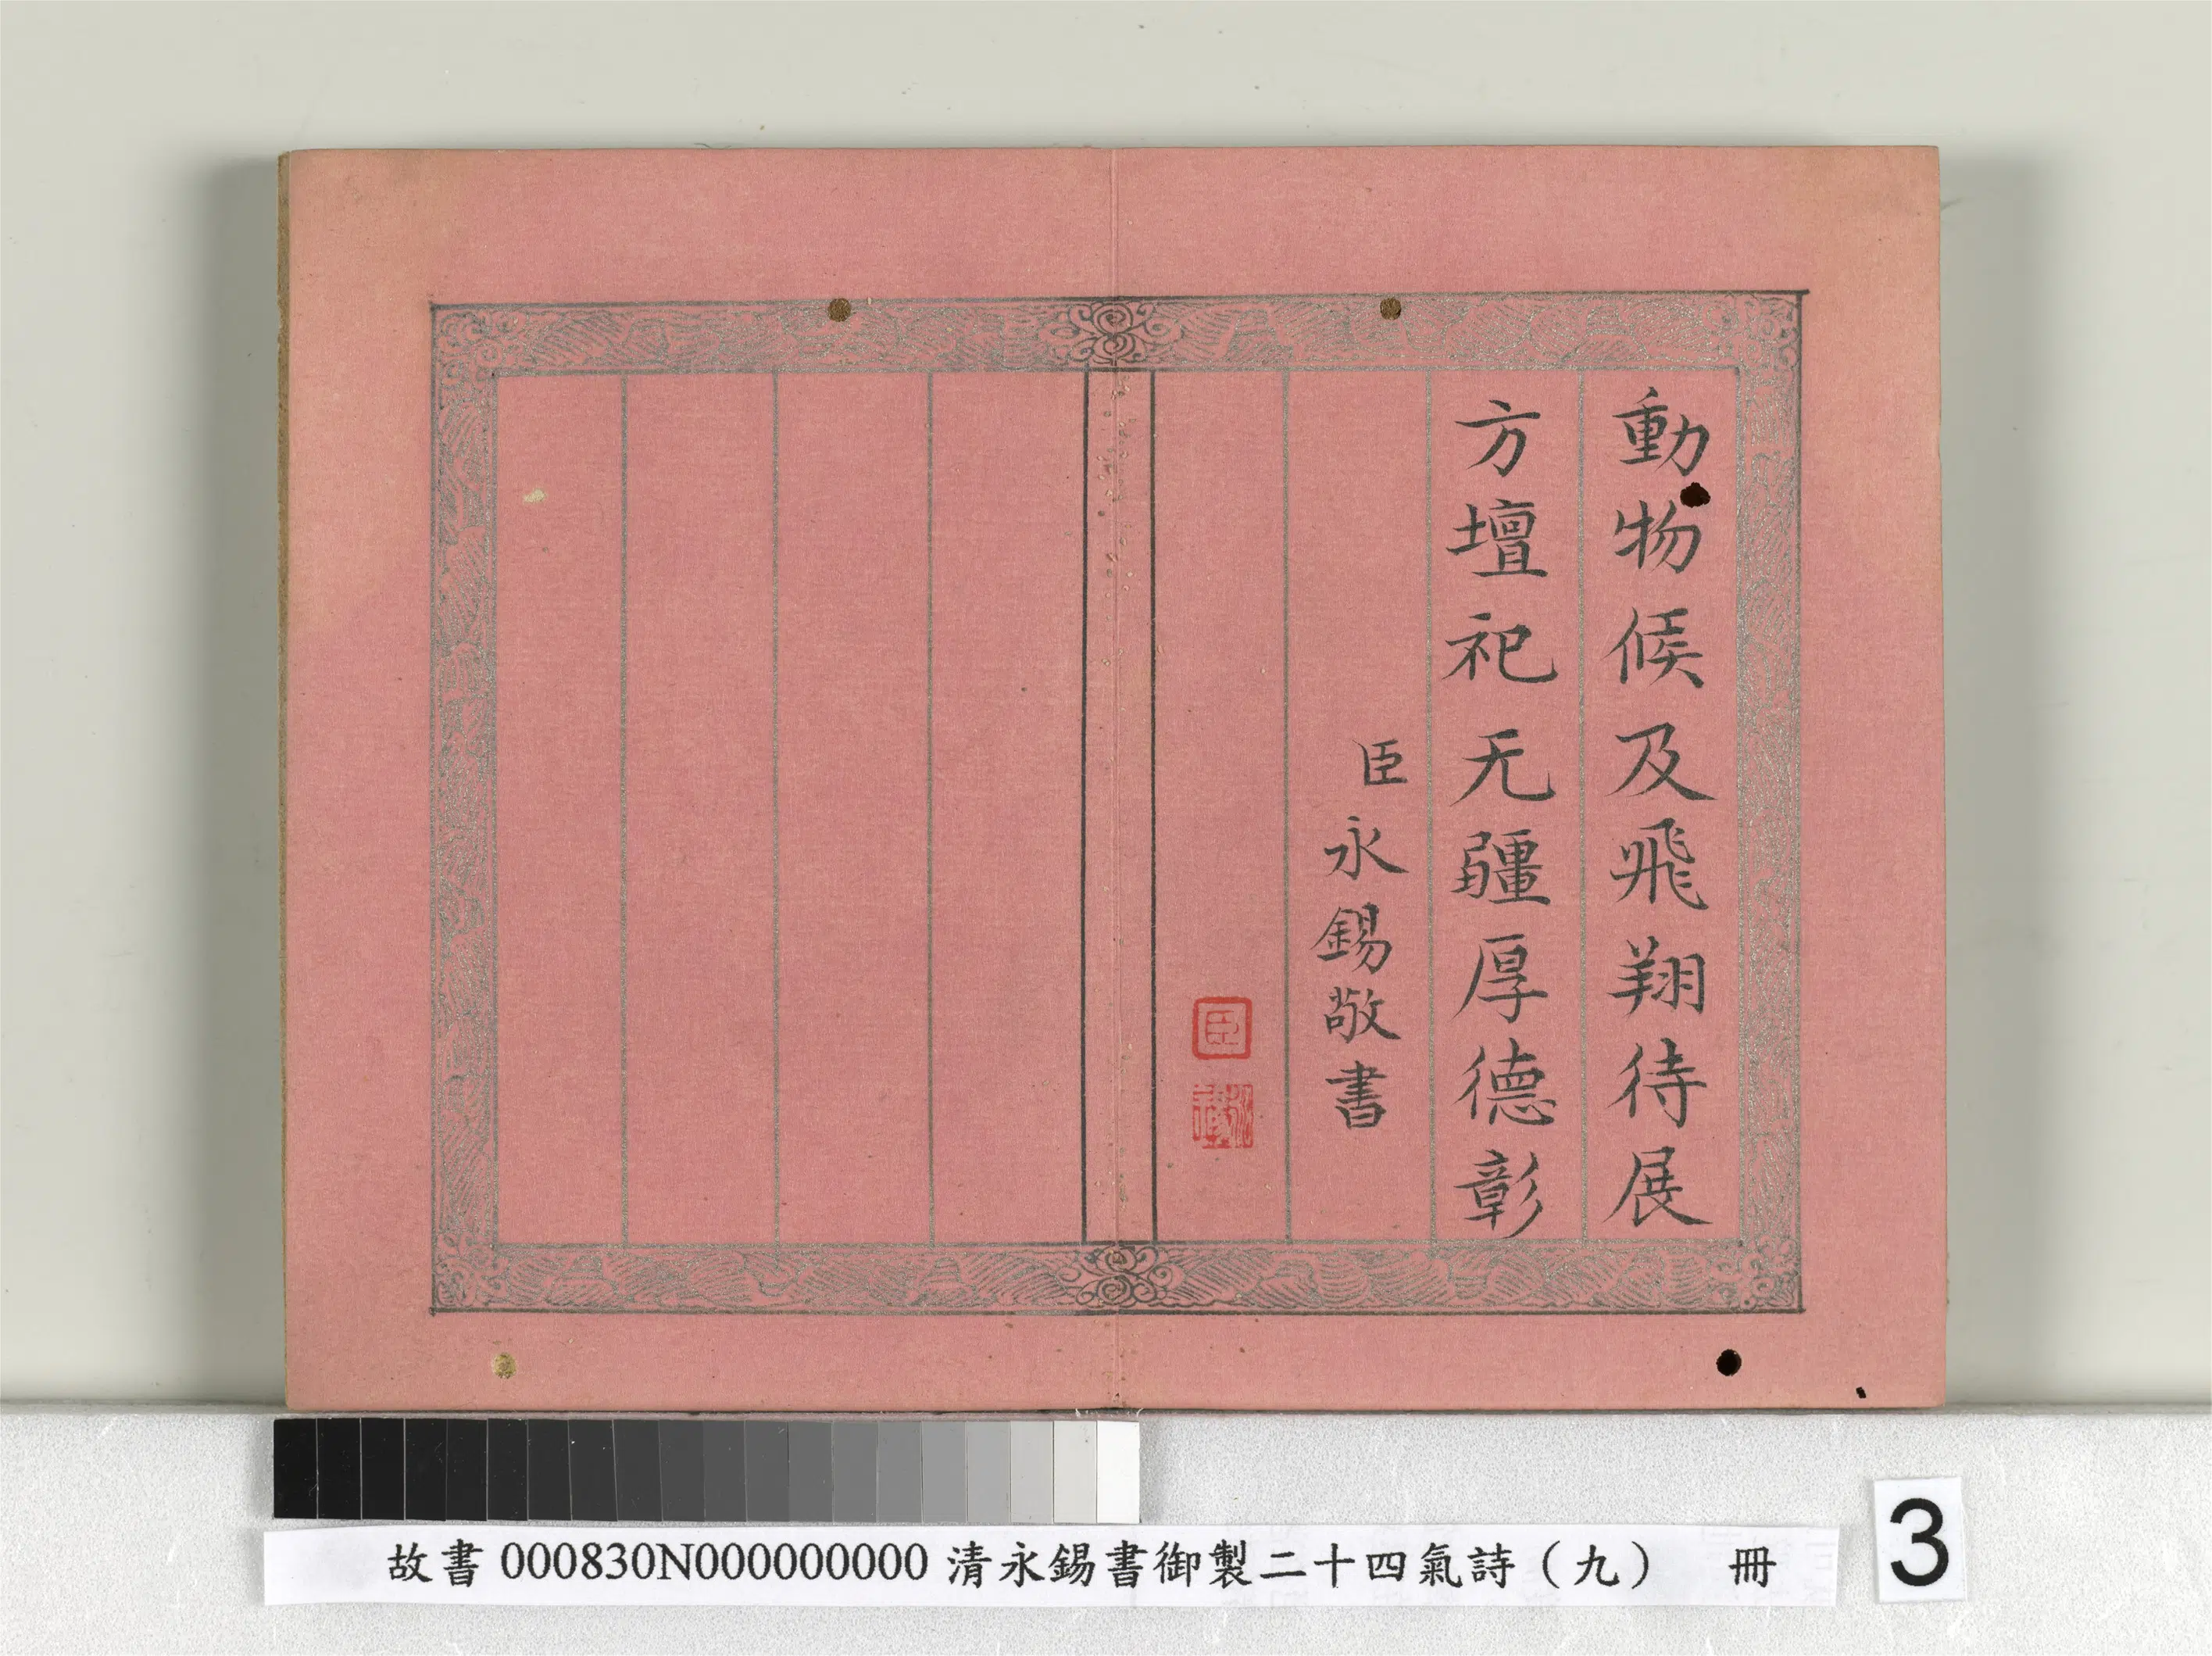 動物候及飛翔待展
方壇祀无疆厚德彰
臣永錫敬書
臣
永錫
故書000830N000000000清永錫書御製二十四氣詩（九） 冊
3